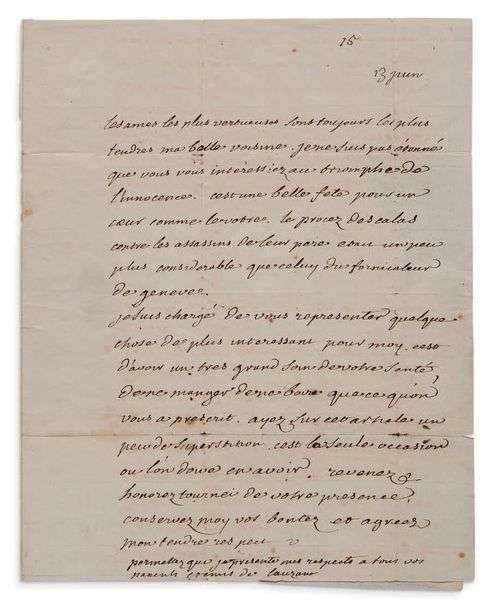 15
13 juin
les ames les plus vertueuses sont toujours les plus
tendres ma belle voisine. je ne suis pas étonné
que vous vous intéressiez au triomphe de
l'innocence. c'est une belle fete pour un
cœur comme le votre. le procez des calas
contre les assassins de leur pere etait un peu
plus considerable que celuy du fornicateur
de geneve.
je suis chargé de vous representer quelque
chose de plus interessant pour moy. c'est
d'avoir un tres grand soin de votre santé
de ne manger de ne boire que ce qu'on
vous a prescrit. ayez sur cet article un
peu de superstition. c'est la seule occasion
ou l'on doive en avoir. revenez
honorez tournei de votre presence.
conservez moy vos bontez et agreez
mon tendre respect v
permettez que je presente mes respects a tous vos
parents de lauzane